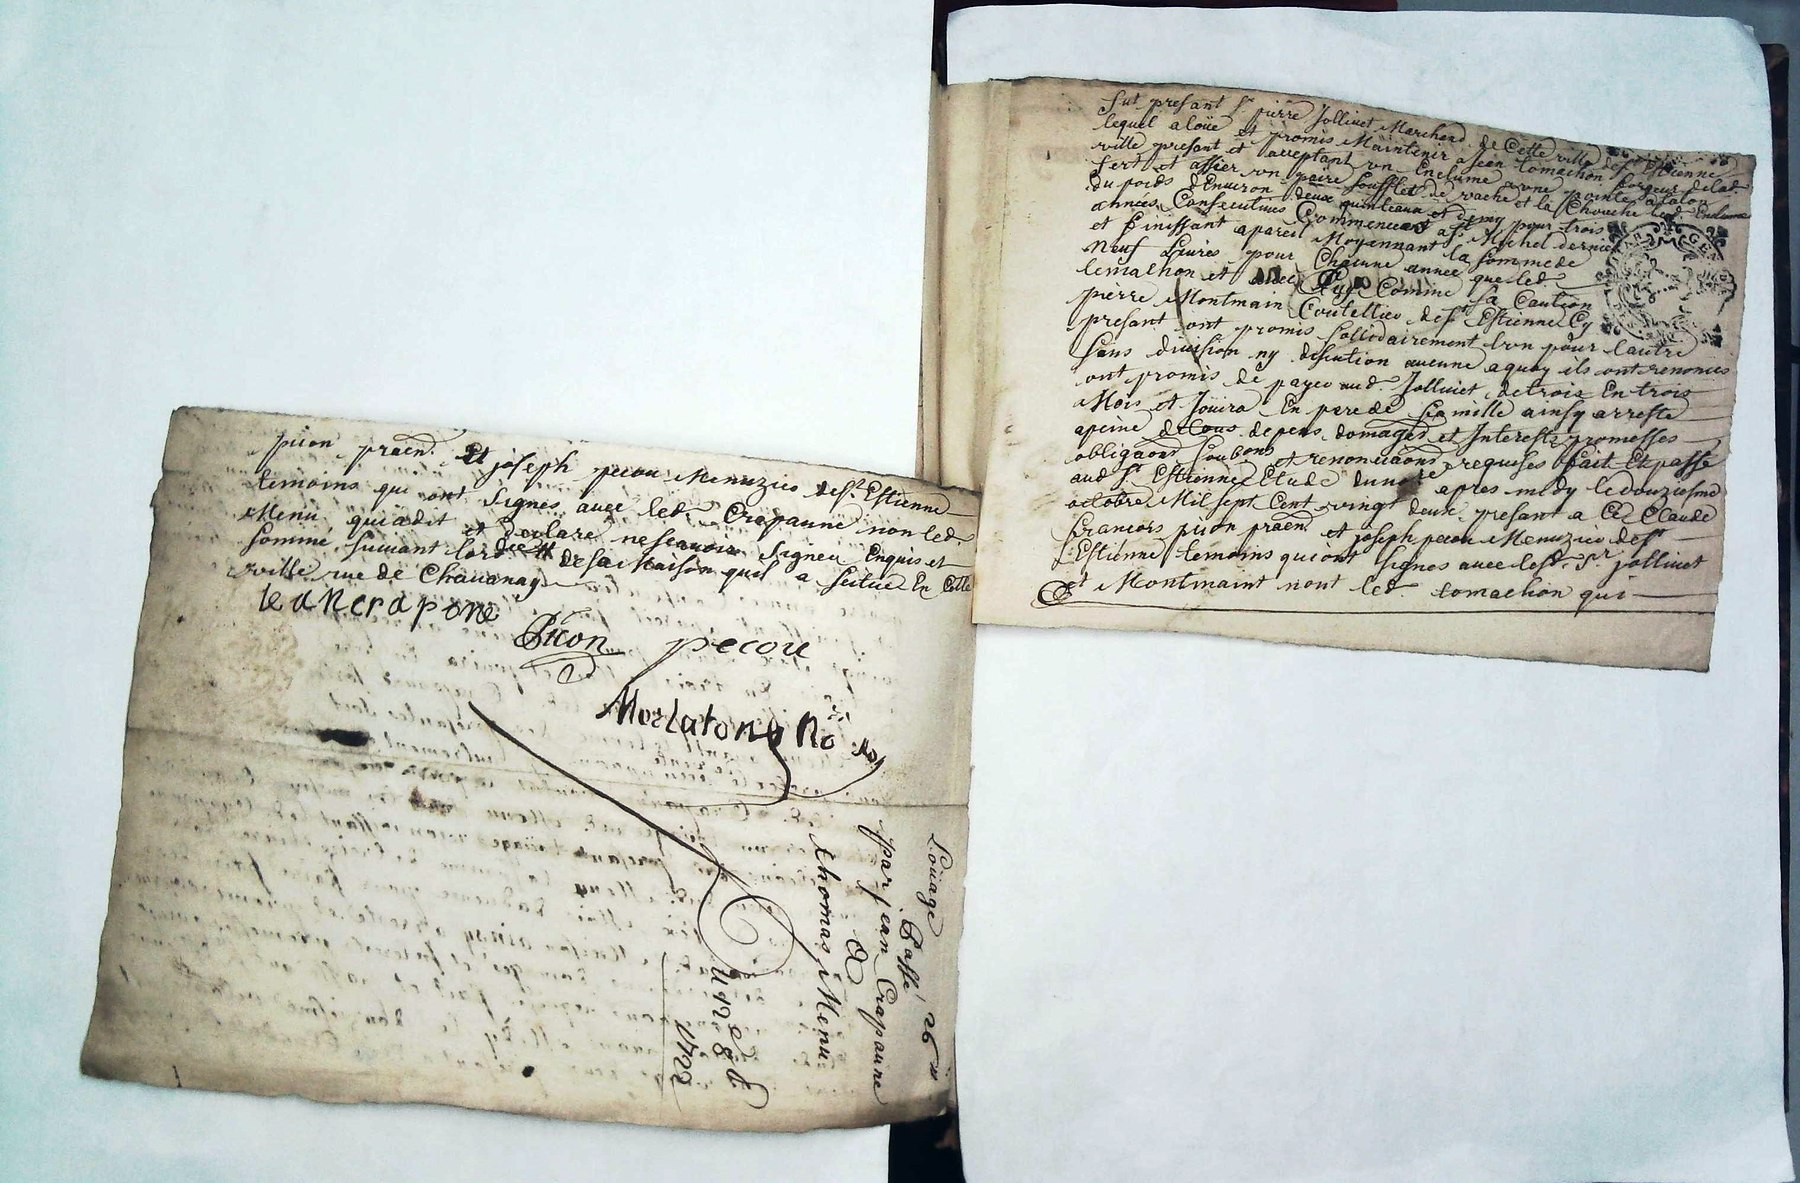 pion praēn. Et joseph pecou Menuzier de St. Estienne
temoins qui ont signés avec led. Crapanne non led.
Menu qui a dit et declaré ne scavoir signer Enquis et
sommé suivant lord de sa Maison quil a scitué En Cette
ville rue de Chavanay
jeaN crapone
Pion pecou
Morlatong No
Loüage
Passé 26
par jean Crapanne
A
thomas Menu
1722
fut presant Sr. pierre Jolliuet Marchand de Cette ville de St. Estienne
lequel a loüé et promis Maintenir a Jean tomachon forgeur de lad.
ville presant et acceptant un Enclume une pointe a talon
fert et assier un paire soufflets de vache et la Led. Enclume
du poids d'Environ deux quinteaux et demy pour trois
années Consecutives Commencées a St. Michel dernier
et finissant a pareil Moyennant la somme de
Neuf Livres pour Chacune année que led.
temachon et avec Luy Comme sa Caution
pierre Montmain Coutellier de St. Estienne Cy
presant ont promis sollidairement l'un pour l'autre
sans division ny discution aucune a quoy ils ont renoncés
ont promis de payer aud. Jolliuet de trois En trois
Mois et Joüira En pere de famille ainsy arresté
a peine de tous depens domages et Interests promesses
obligaōns soubons et renonciaōns requises fait Et passé
aud. St. Estienne Etude du nore apres midy le douziesme
octobre Mil sept Cent vingt deux presant a Ce Claude
francois pion praēn. et joseph pecou Menuzier de St.
Estienne temoins qui ont signés avec lesd. Sr. jolliuet
et Montmaint nont led. tomachon qui